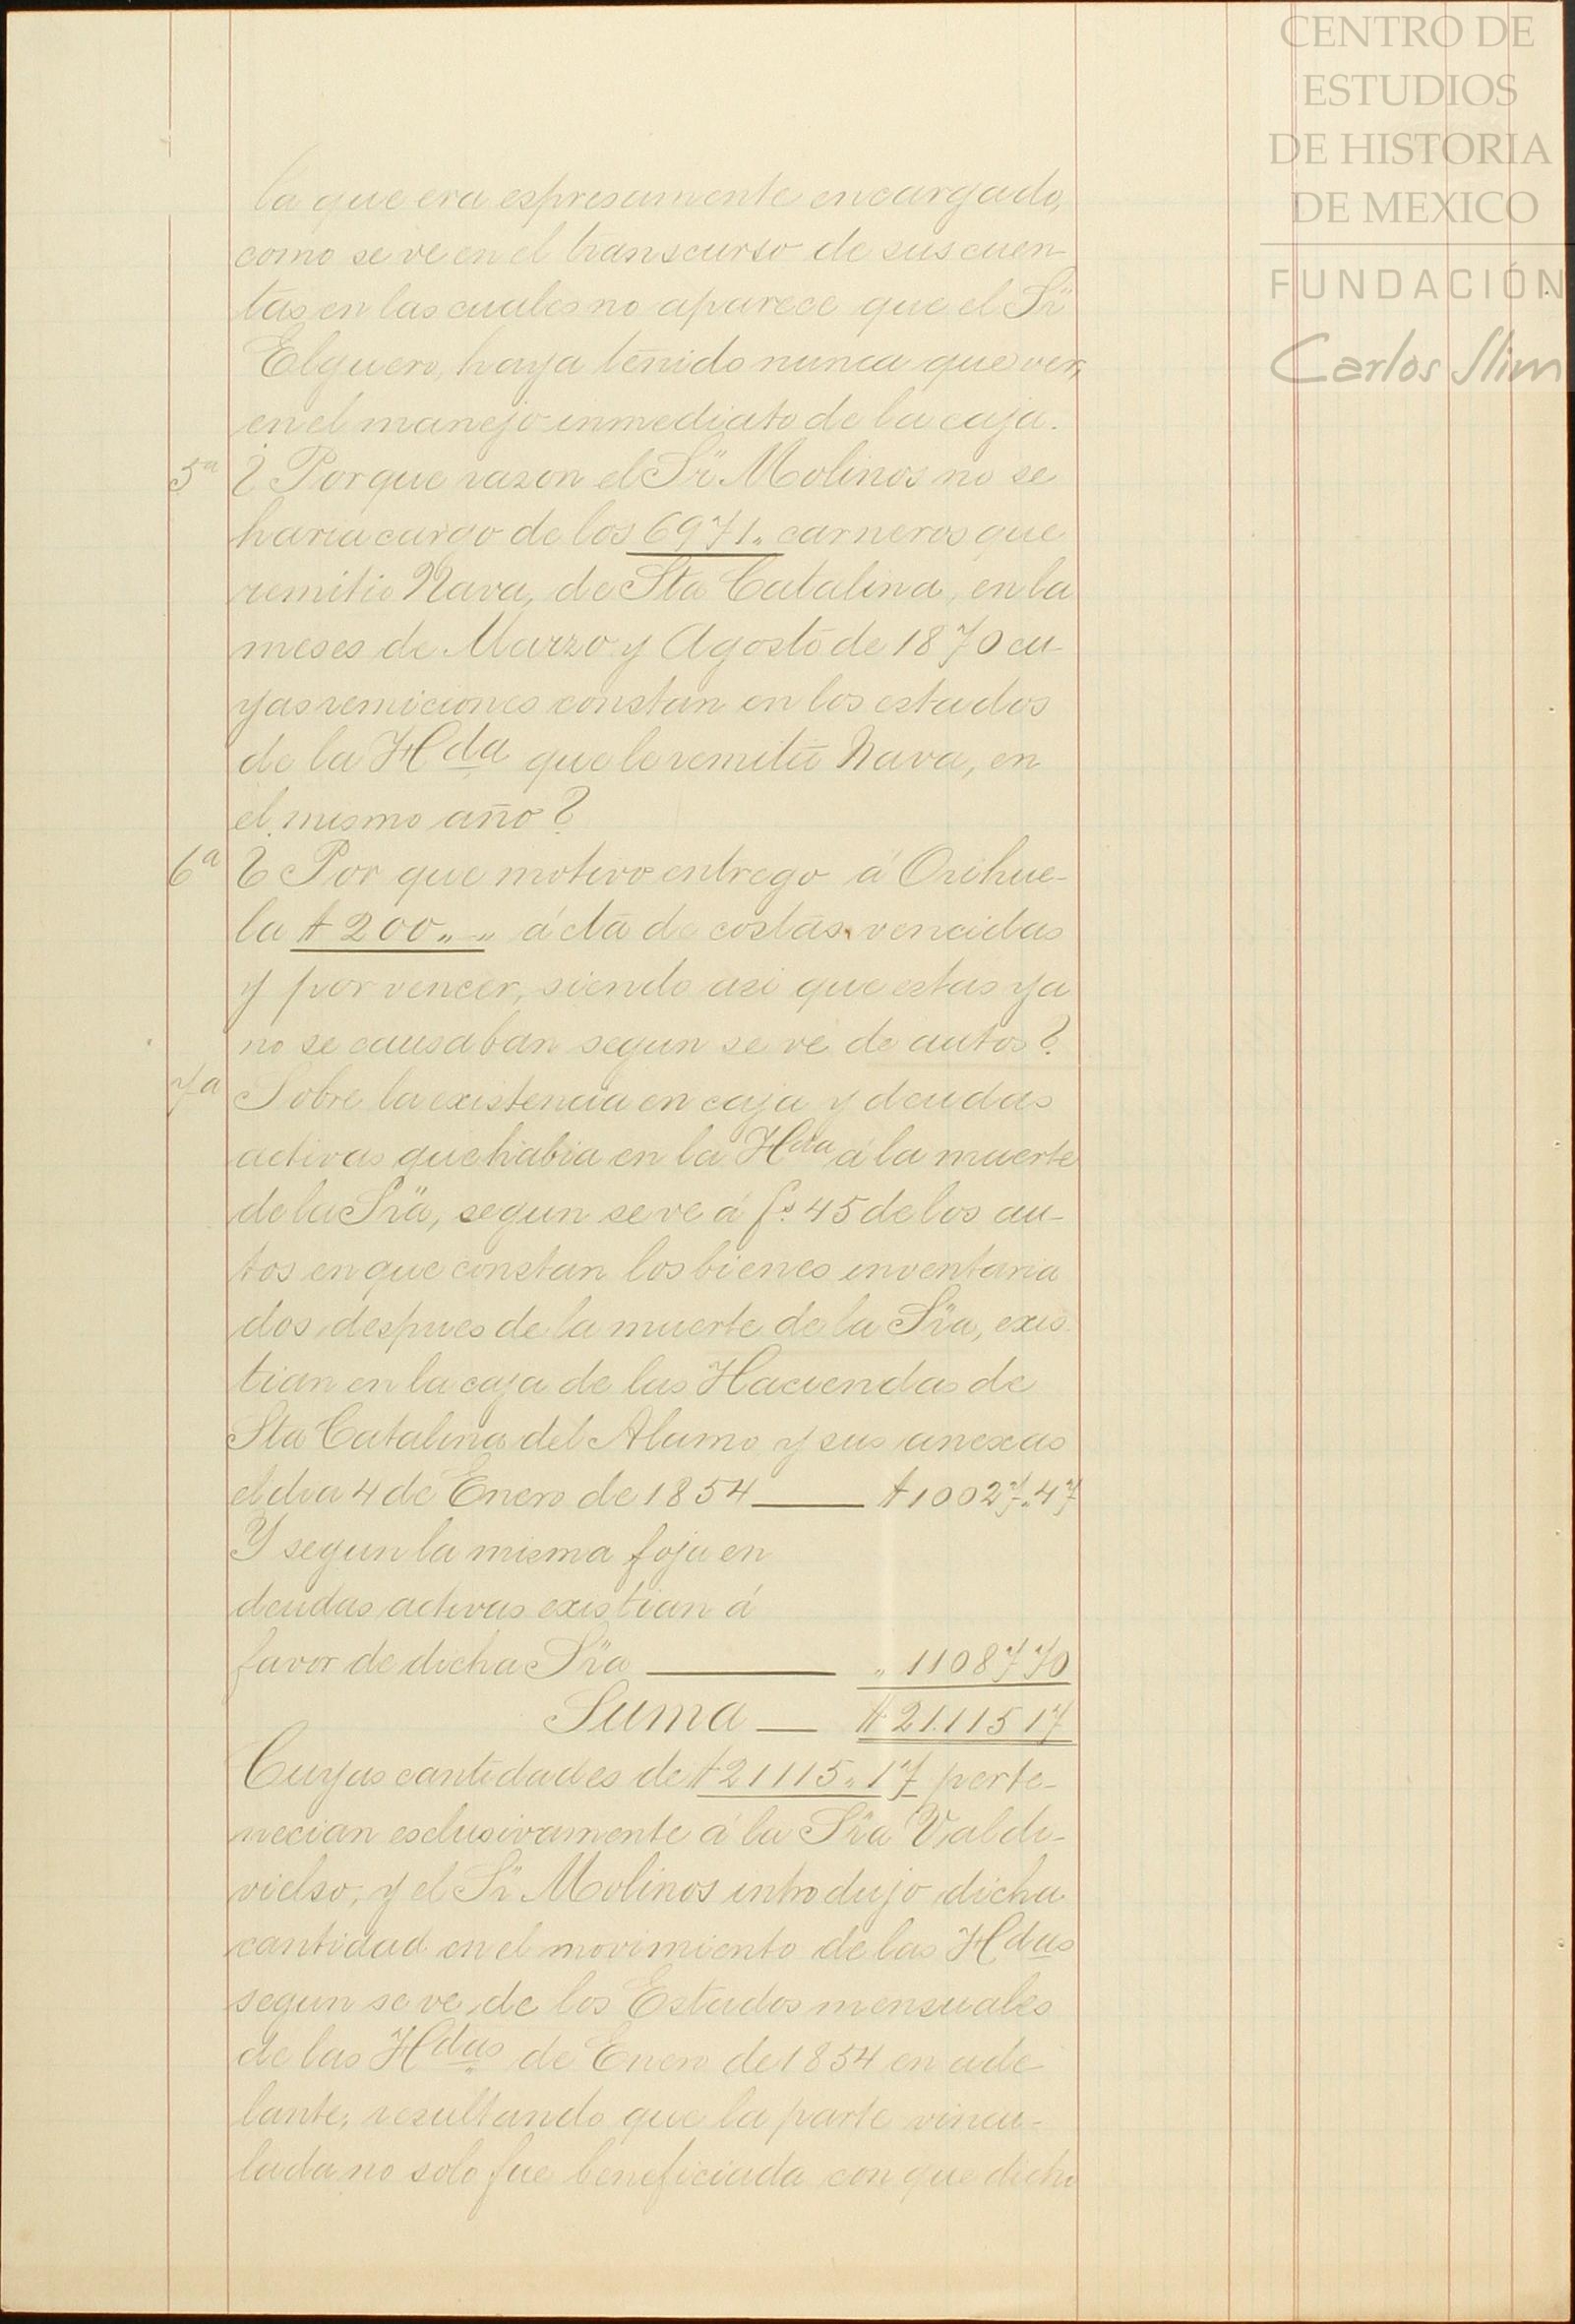 CENTRO DE
ESTUDIOS
DE HISTORIA
DE MEXICO
FUNDACIÓN
Carlos Slim
la que era espresamente encargado,
como se ve en el transcurso de sus cuen-
tas en las cuales no aparece que el Sr
Elguero, haya tenido nunca que ver,
en el manejo inmediato de la caja.
5ª ¿Porque razon el Sr Molinos no se
haria cargo de los 6971" carneros que
remitio Nava, de Sta Catalina, en la
meses de Marzo y Agosto de 1870 cu-
yas remiciones constan en los estados
de la Hda que le remitió Nava, en
el mismo año?
6ª ¿Por que motivo entrego á Orihue-
la $200"" á cta de costas vencidas
y por vencer, siendo asi que estas ya
no se causaban segun se ve de autos?
7ª Sobre la existencia en caja y deudas
activas que habia en la Hda á la muerte
de la Sra, segun se ve á fs. 45 de los au-
tos en que constan los bienes inventaria
dos despues de la muerte de la Sra, exis
tian en la caja de las Haciendas de
Sta Catalina del Alamo y sus anexas
el dia 4 de Enero de 1854 ___ $10027"47
Y segun la misma foja en
deudas activas existian á
favor de dicha Sra ___ " 11087 70
Suma ___ $21.115 17
Cuyas cantidades de $21115"17 perte-
necian esclusivamente á la Sra Valdi-
vielso, y el Sr Molinos introdujo dicha
cantidad en el movimiento de las Hdas
segun se ve de los Estados mensuales
de las Hdas de Enero de 1854 en ade
lante, resultando que la parte vincu-
lada no solo fue beneficiada con que dicha